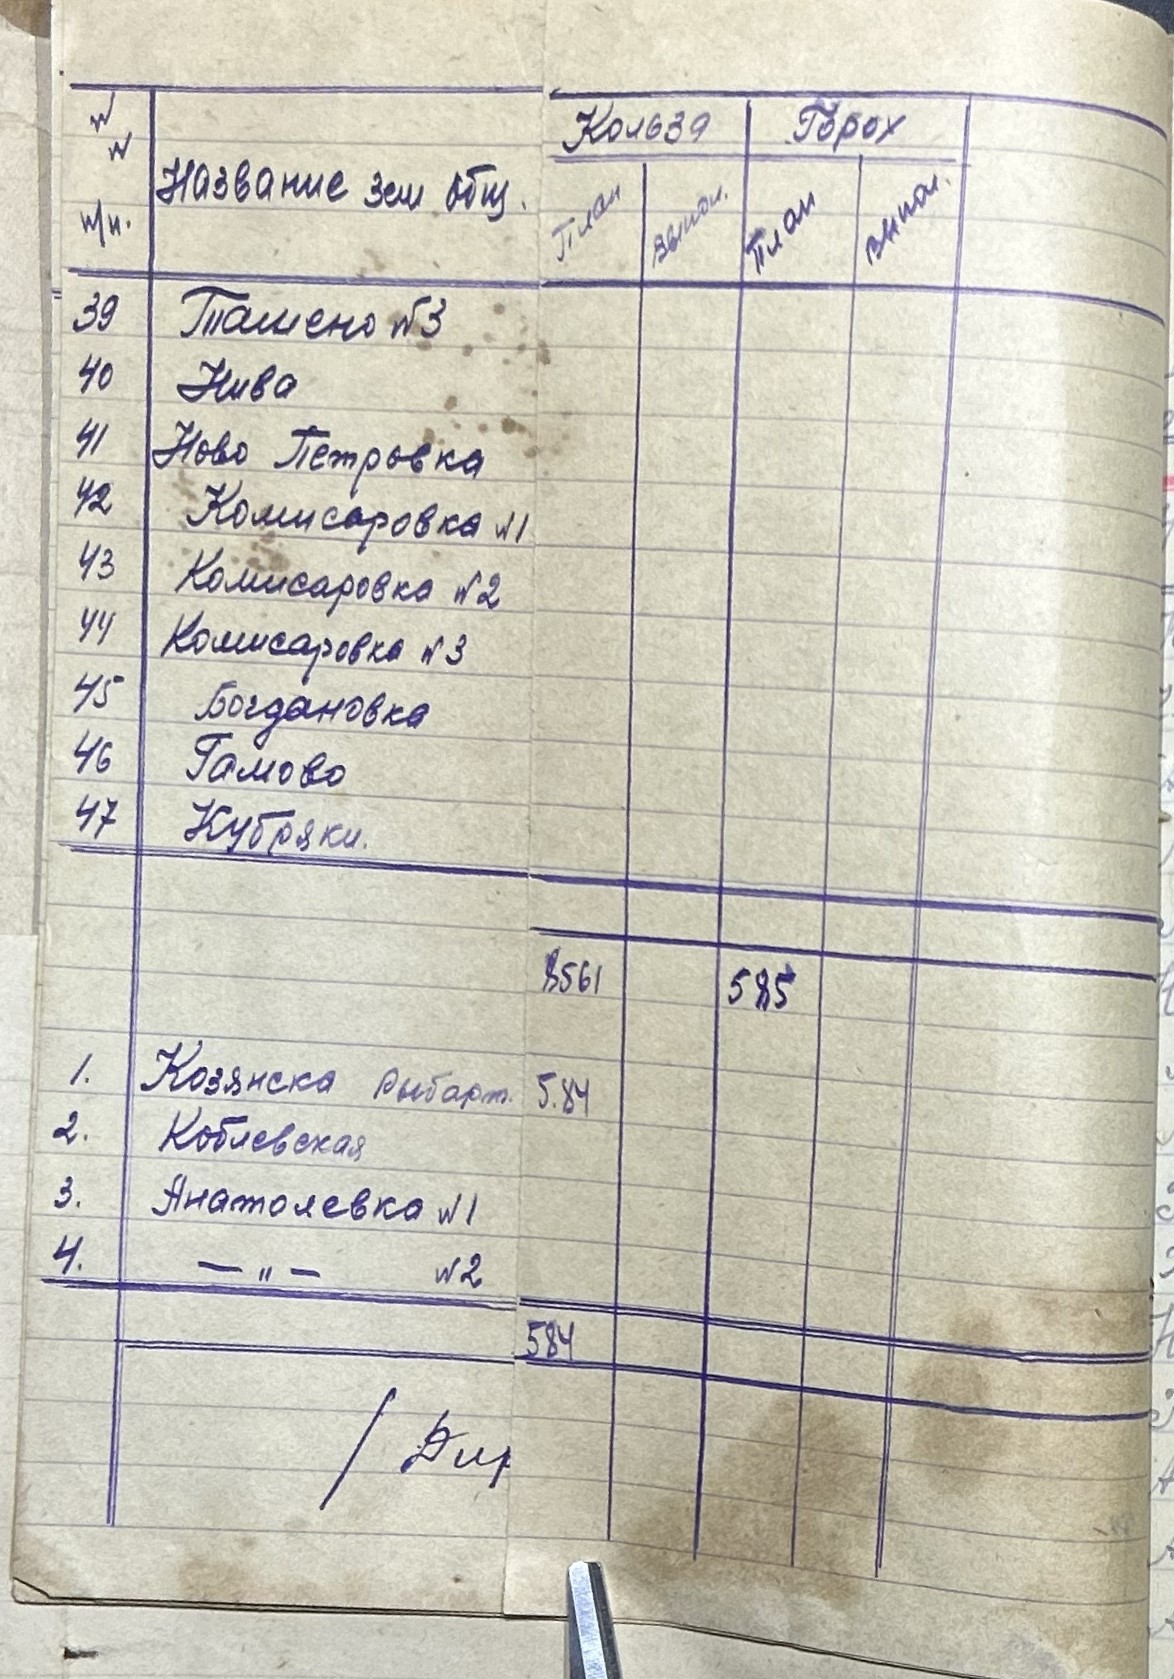 № № п/п. Название зем общ. Кользa Горох
План Выпол. План Выпол.
39 Ташено №3
40 Нива
41 Ново Петровка
42 Комисаровка №1
43 Комисаровка №2
44 Комисаровка №3
45 Богдановка
46 Гамово
47 Кубряки.
8561 585
1. Козянска Рыбарт. 5.84
2. Коблевская
3. Анатолевка №1
4. — „ — №2
584
/ Дир